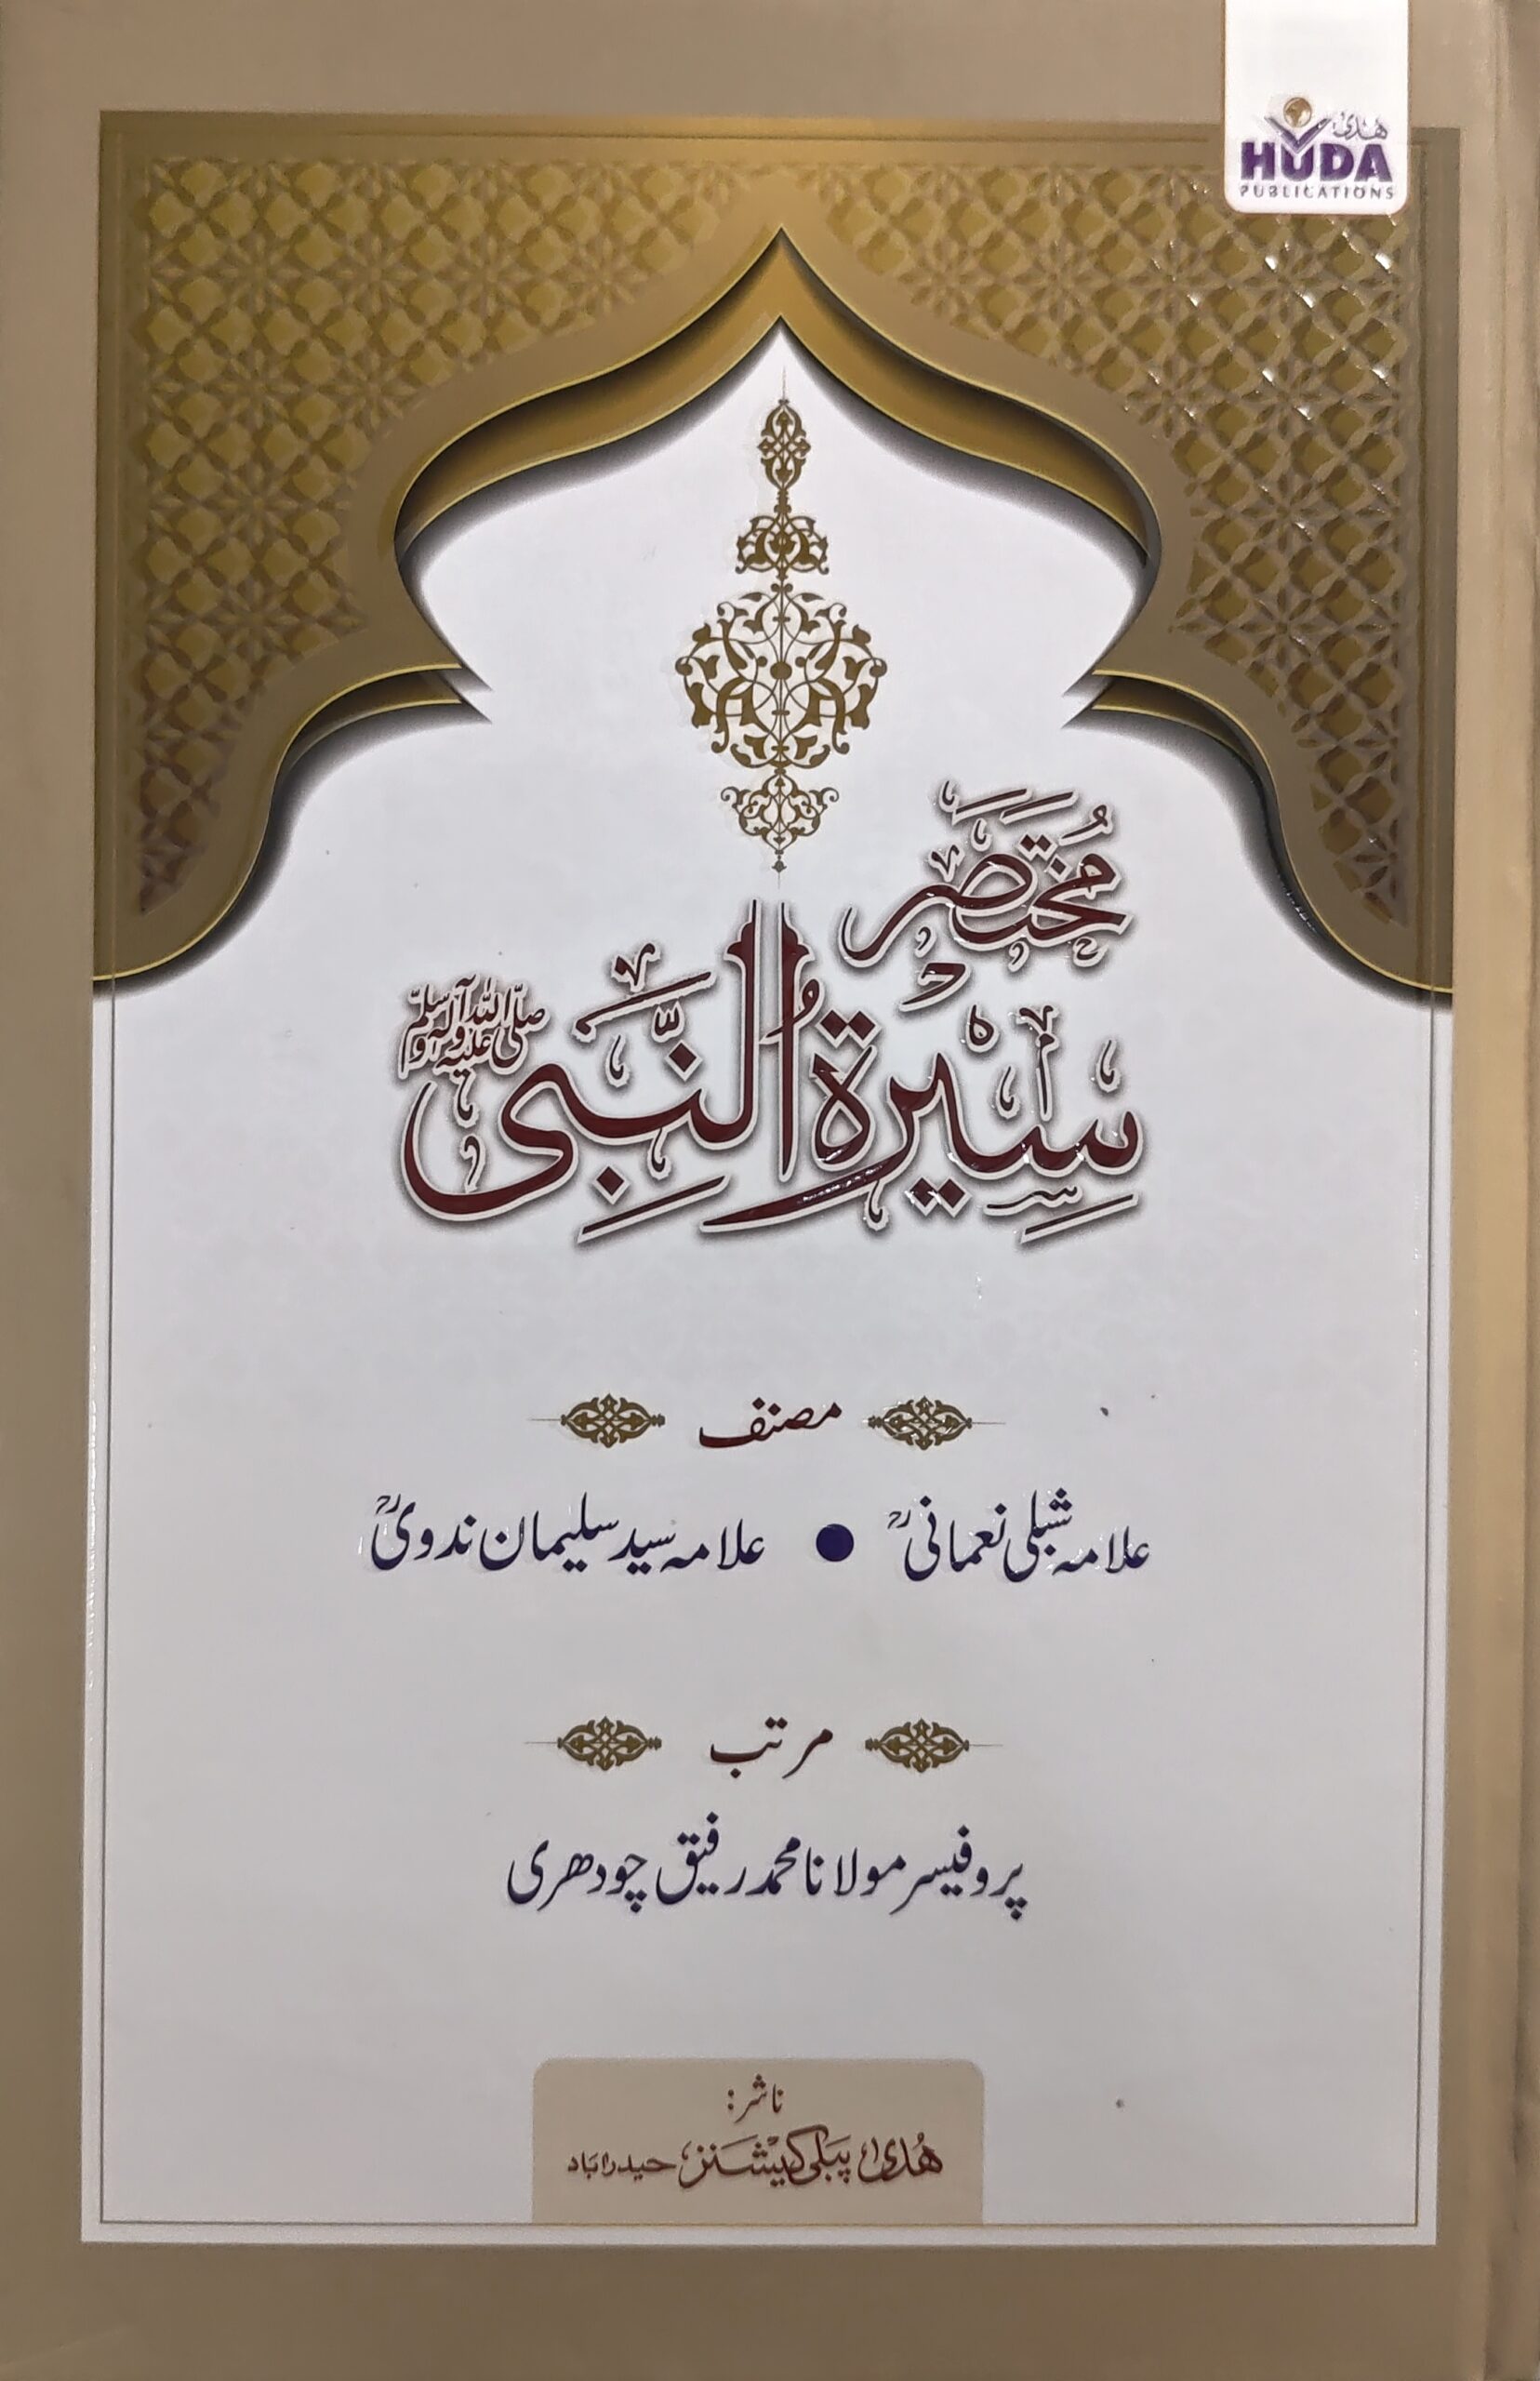 ھدیٰ
HUDA
PUBLICATIONS
مُختصر
سِیْرۃُ النَّبِیؐ
صلّی اللہ علیہ وآلہ وسلّم
مصنف
علامہ شبلی نعمانیؒ ● علامہ سید سلیمان ندویؒ
مرتب
پروفیسر مولانا محمد رفیق چودھری
ناشر:
ھُدیٰ پبلی کیشنز، حیدرآباد